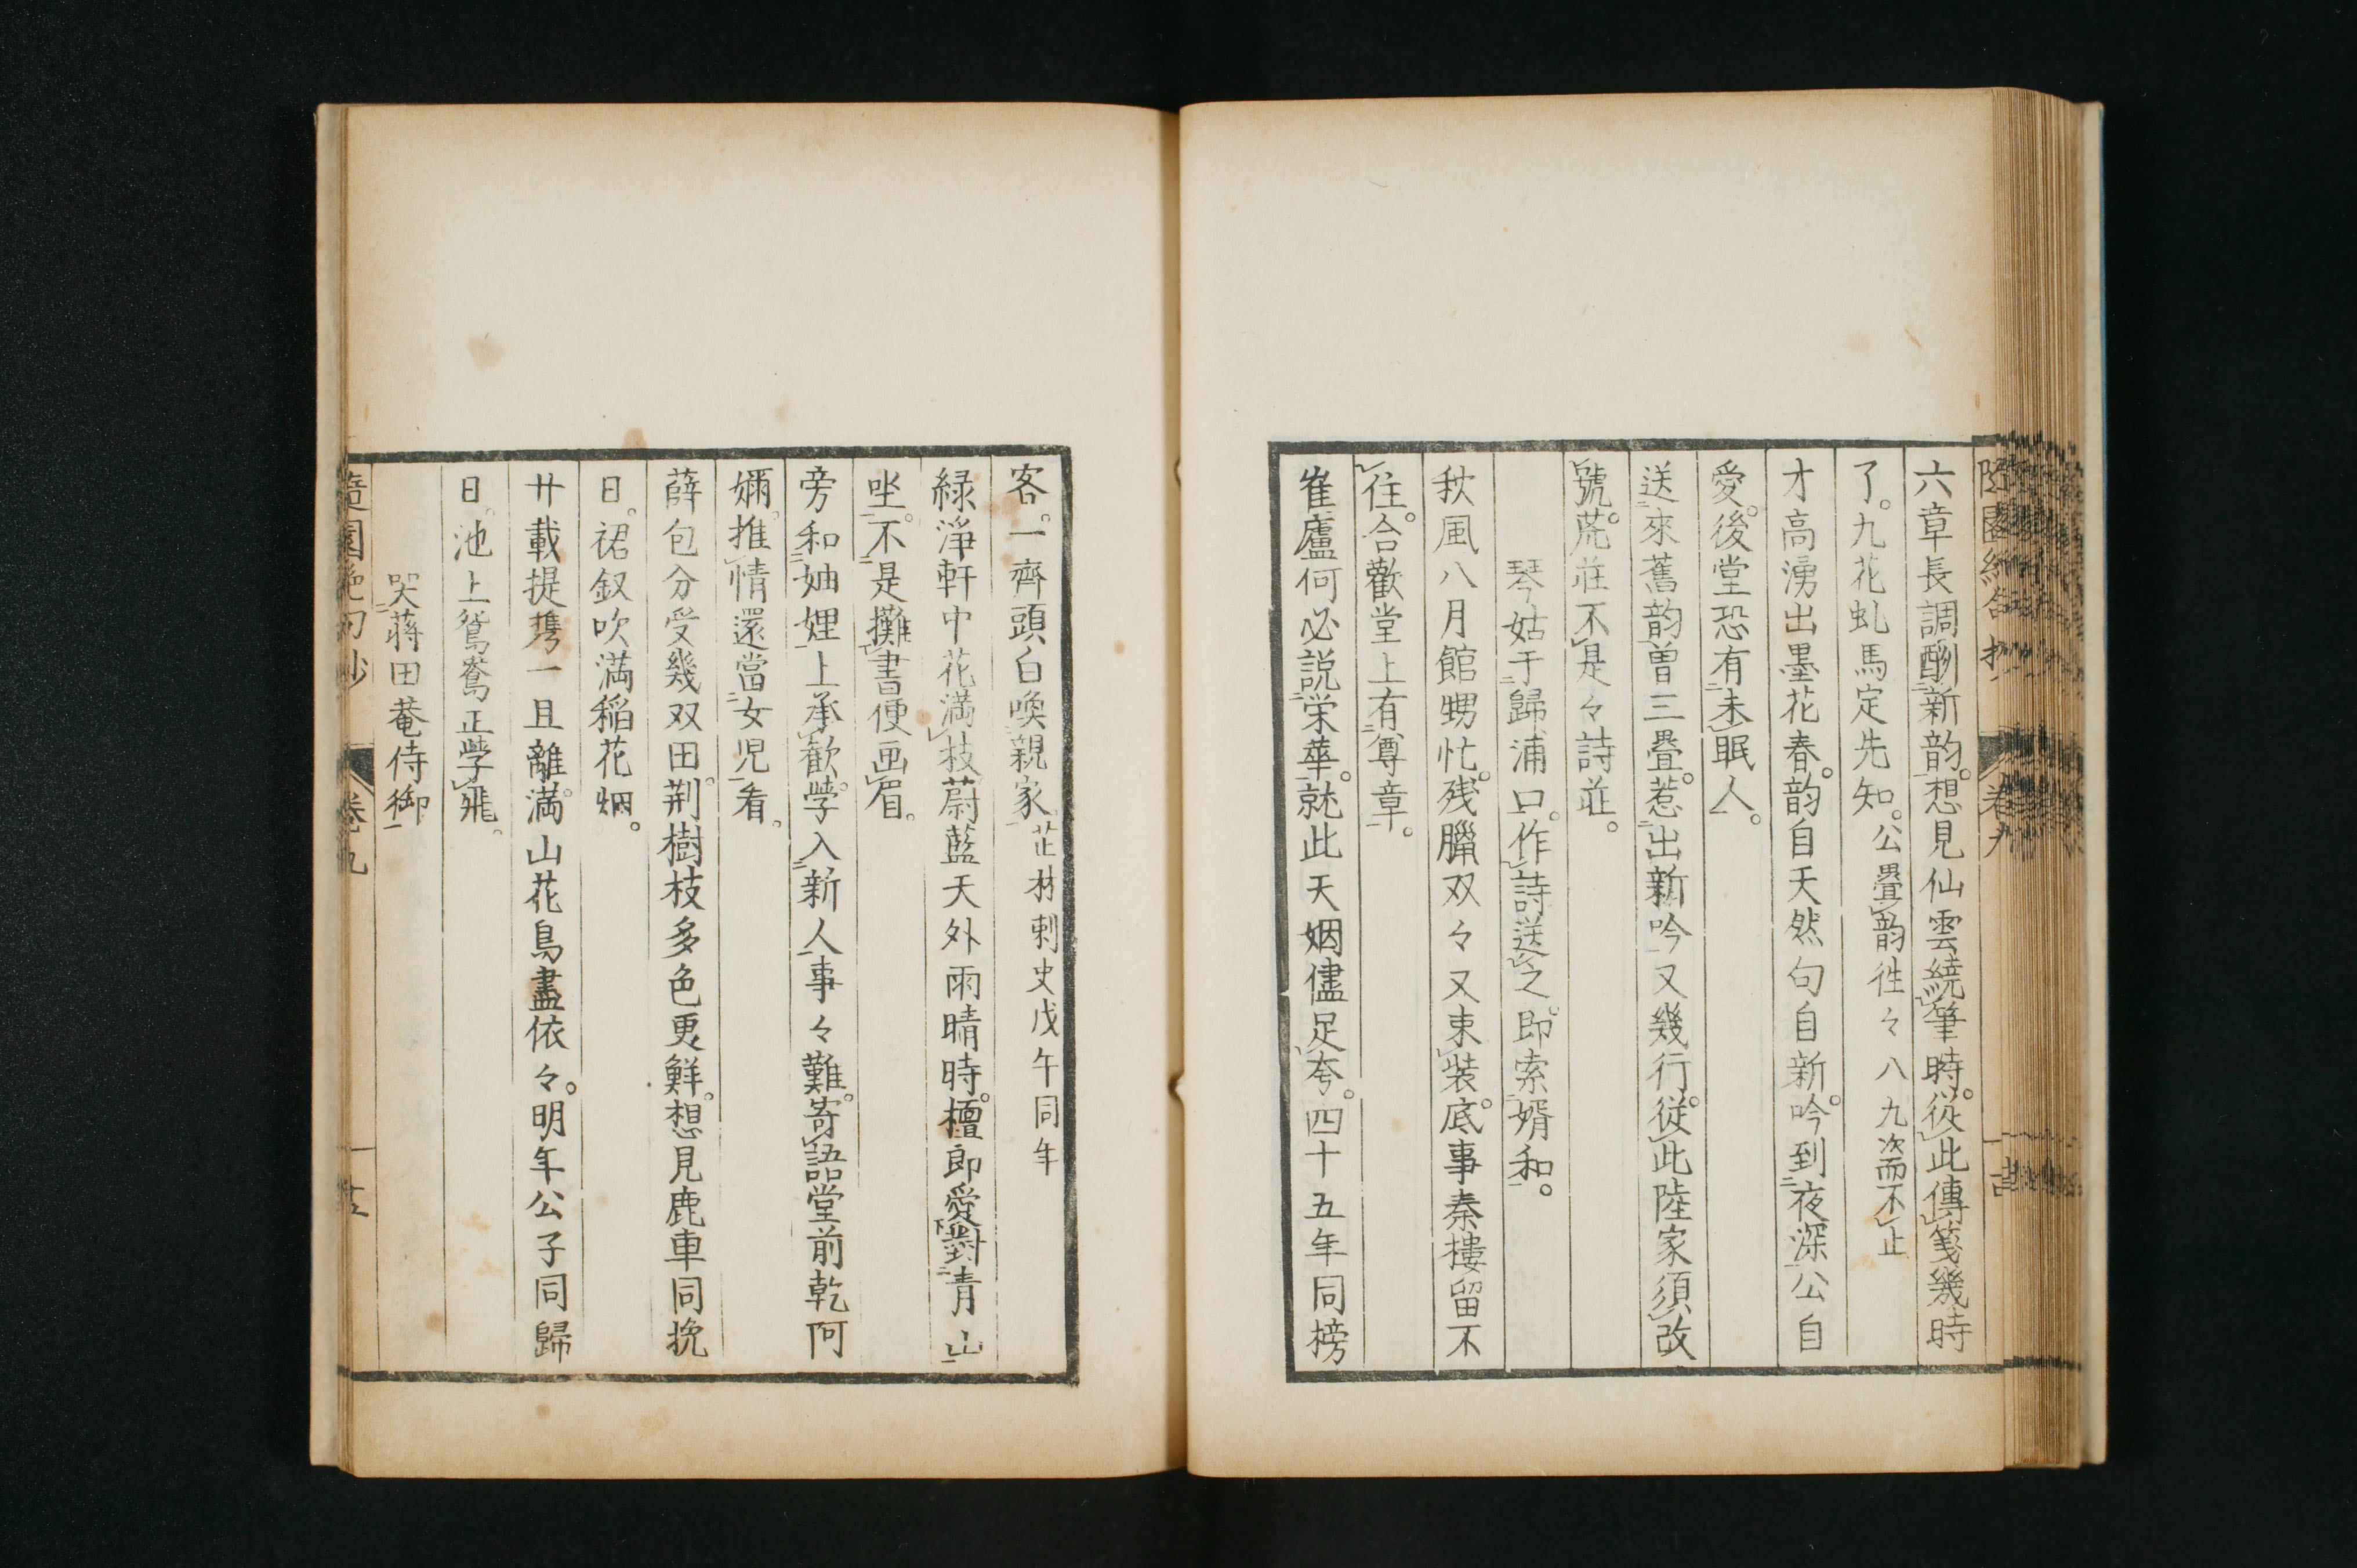 六章長調酬新韵。想見仙雲繞筆時。從此傳箋幾時
了。九花虬馬定先知。公疊韵徃々八九次而不止
才高湧出墨花春。韵自天然句自新。吟到夜深公自
愛。後堂恐有未眠人。
送來舊韵曽三疊。惹出新吟又幾行。從此陸家須改
號。荒莊不是々詩莊。
琴姑于歸浦口。作詩送之。即索婿和。
秋風八月館甥忙。残臘双々又束装。底事秦樓留不
住。合歡堂上有尊章。
崔廬何必説栄華。就此天姻儘足夸。四十五年同榜
客。一齊頭白喚親家。芷林刺史戊午同年
緑淨軒中花満枝。蔚藍天外雨晴時。檀郎愛對青山
坐。不是攤書便画眉。
旁和妯娌上承歓。學入新人事々難。寄語堂前乾阿
嬭。推情還當女児看。
薛包分受幾双田。荆樹枝多色更鮮。想見鹿車同挽
日。裙釵吹満稲花烟。
廿載提携一旦離。満山花鳥盡依々。明年公子同歸
日。池上鴛鴦正學飛。
哭蒋田菴侍御
卷九